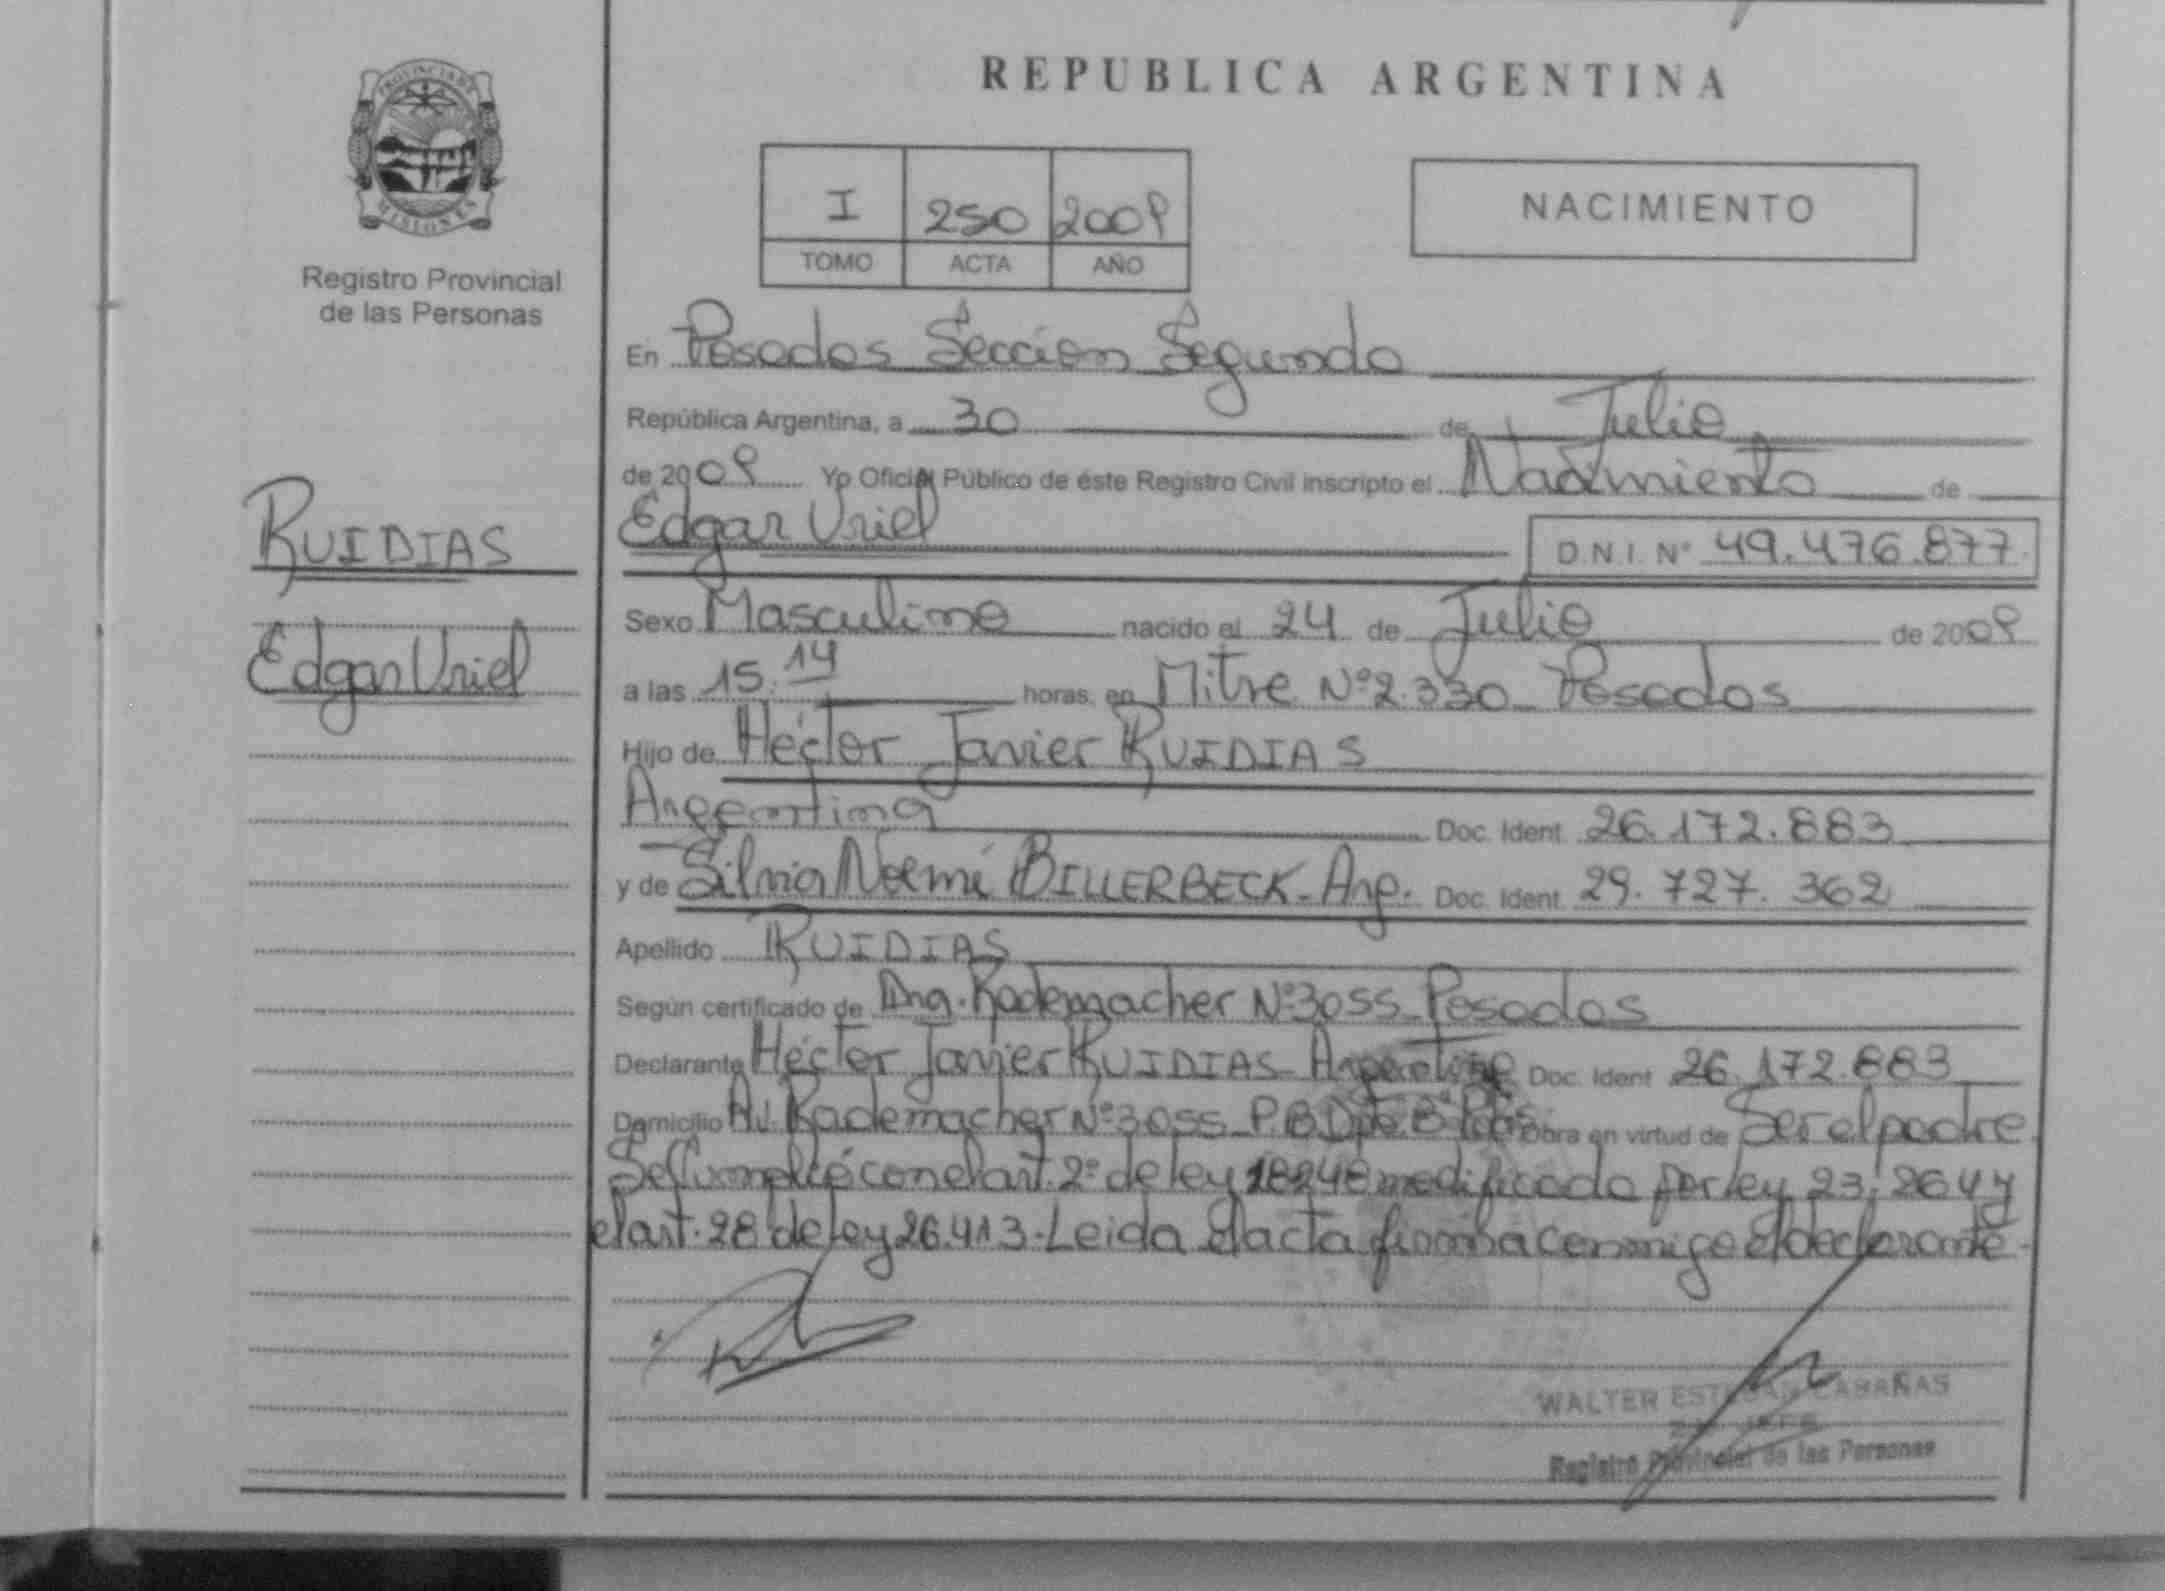 PROVINCIA DE
MISIONES
Registro Provincial
de las Personas
RUIDIAS
Edgar Uriel
REPUBLICA ARGENTINA
I 250 2009
TOMO ACTA AÑO
NACIMIENTO
En Posadas Sección Segunda
República Argentina, a 30 de Julio
de 2009 Yo Oficial Público de éste Registro Civil inscripto el Nacimiento de
Edgar Uriel D.N.I. Nº 49.476.877
Sexo Masculino nacido el 24 de Julio de 2009
a las 15.14 horas, en Mitre Nº 2.330 Posadas
Hijo de Héctor Javier RUIDIAS
Argentina Doc. Ident 26.172.883
y de Silvia Noemí BILLERBECK - Arg. Doc. Ident 29.727.362
Apellido RUIDIAS
Según certificado de Rademacher Nº 3055 - Posadas
Declarante Héctor Javier RUIDIAS - Argentino Doc. Ident 26.172.883
Domicilio Av. Rademacher Nº 3055 P.B. Dpto. B Obra en virtud de Ser el padre
Se cumplió con el art. 2º de ley 18248 modificada por ley 23.264 y
el art. 28 de ley 26.413 - Leida el acta firma conmigo el declarante -
WALTER ESTEBAN CABAÑAS
JEFE
Registro Provincial de las Personas